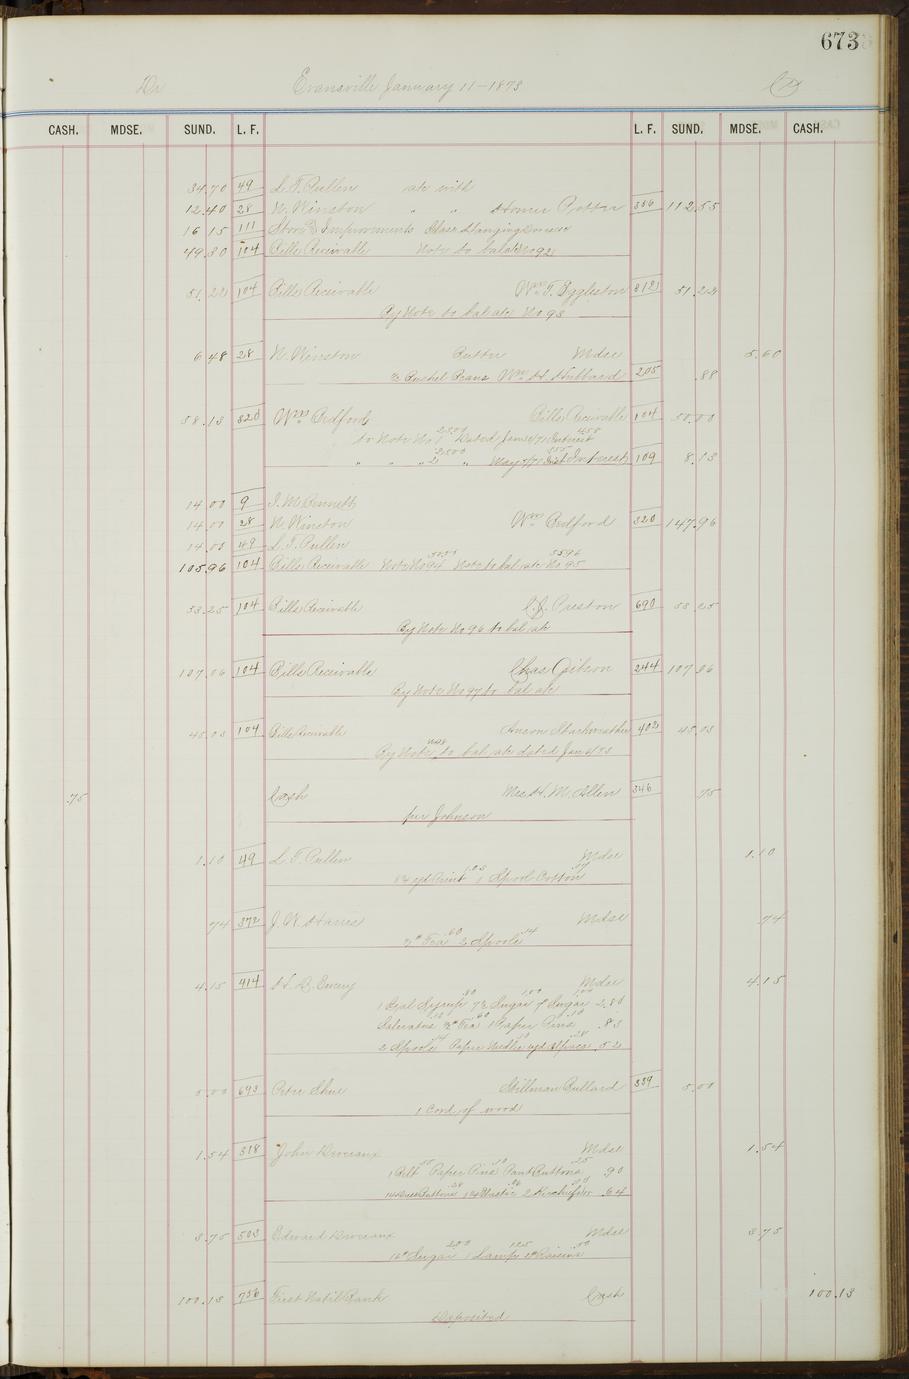 673
Dr Evansville January 11-1873 Cr
CASH. MDSE. SUND. L. F. L. F. SUND. MDSE. CASH.
34.70 49 L. T. Pullen ac with
12.40 28 N. Winston " " Homer Potter 356 112.55
16 15 111 Store & Improvments
49.30 104 Bills Receivable Note to bal ac No 92
51.22 104 Bills Receivable Wm. T. Eggleston 312 51.22
By Note to bal ac No 93
6.48 28 N. Winston Butter Mdse 5.60
½ Bushel Beans Wm. H. Hubbard 205 .88
58.13 320 Wm. Bedford Bills Receivable 104 50.00
to Note No 1 Dated Interest
" " " 2 " May Interest 109 8.13
14.00 9 J. M. Bennett
14.00 28 N. Winston Wm. Bedford 320 147.96
14.00 49 L. T. Pullen
105.96 104 Bills Receivable Note No 94 Note to bal ac No 95
53.25 104 Bills Receivable Preston 690 53.25
By Note No 96 to bal ac
107.06 104 Bills Receivable Chas Gibson 244 107.06
By Note No 97 to bal ac
45.03 104 Bills Receivable Anson Starkweather 402 45.03
By Note to bal ac dated Jan
.75 Cash Mrs H. M. Allen 346 .75
per Johnson
1.10 49 L. T. Pullen Mdse 1.10
yd Print 1 Spool Cotton
.74 372 J. W. Harris Mdse .74
Tea .60 2 Spools .14
4.15 414 H. B. Emery Mdse 4.15
1 Gal Syrup Sugar Sugar 2.80
Saleratus Tea 1 Paper Pins .83
2 Spools Paper Needles .52
5.00 693 Peter Shue Stillman Bullard 339 5.00
1 Cord of wood
1.54 318 John Mdse 1.54
1 Belt Paper Pins Pant Buttons .90
Buttons Elastic 2 .64
3.75 503 Edward Mdse 3.75
Sugar 1 Lamp Raisins
100.13 756 First Nat'l Bank Cash 100.13
Deposited